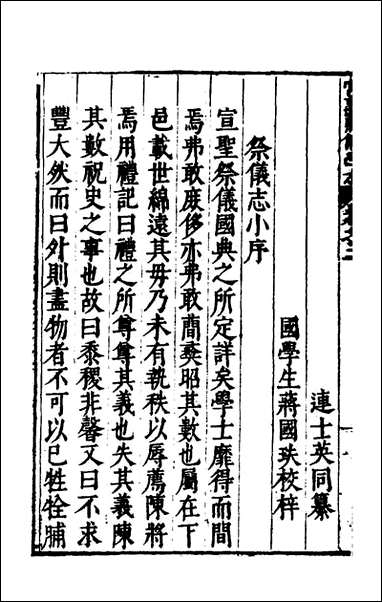 連士英同纂
國學生蔣國珠校梓
祭儀志小序
宣聖祭儀國典之所定詳矣學士靡得而間
焉弗敢度侈亦弗敢蕳彛昭其數也屬在下
邑載世綿遠其毋乃未有執秩以辱薦陳將
焉用禮記曰禮之所尊尊其義也失其義陳
其數祝史之事也故曰黍稷非馨又曰不求
豐大然而曰外則盡物者不可以已牲牷脯